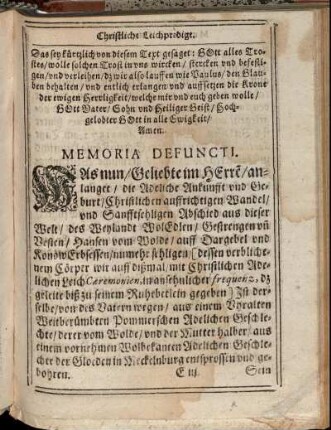 Christliche Leichpredigt.
Das sey kürtzlich von diesem Text gesaget: GOtt alles Tro-
stes/wolle solchen Trost in vns wircken / stercken vnd befesti-
gen/vnd verleihen/dz wir also lauffen wie Paulus/ den Glau-
ben behalten/vnd entlich erlangen vnd auffsetzen die Krone
der ewigen Herrligkeit/welche mir vnd euch geben wolle/
GOtt Vater/ Sohn vnd Heiliger Geist / Hoch-
gelobter GOtt in alle Ewigkeit/
Amen.
MEMORIA DEFUNCTI.
WAs nun/Geliebte im HErrē/an-
langet / die Adeliche Ankunfft vnd Ge-
burt/Christlichen auffrichtigen Wandel/
vnd Sanfftsehligen Abschied aus dieser
Welt/ des Weylandt WolEdlen/ Gestrengen vñ
Vesten/ Hansen vom Wolde/ auff Dargebel vnd
Konow Erbsessen/nunmehr sehligen [dessen verbliche-
nem Cörper wir auff dißmal, mit Christlichen Ade-
lichen Leich Ceremonien, in ansehnlicher frequenz, dz
geleite biß zu seinem Ruhebetlein gegeben] Ist der-
selbe/von des Vatern wegen/ aus einem Vralten
Weitberümbten Pommerschen Adelichen Geschle-
chte/derer vom Wolde/ vnd der Mutter halber/ aus
einem vornehmen Wolbekanten Adelichen Geschle-
chte der Gloeden in Meckelnburg entsprossen vnd ge-
bohren. E iij. Sein